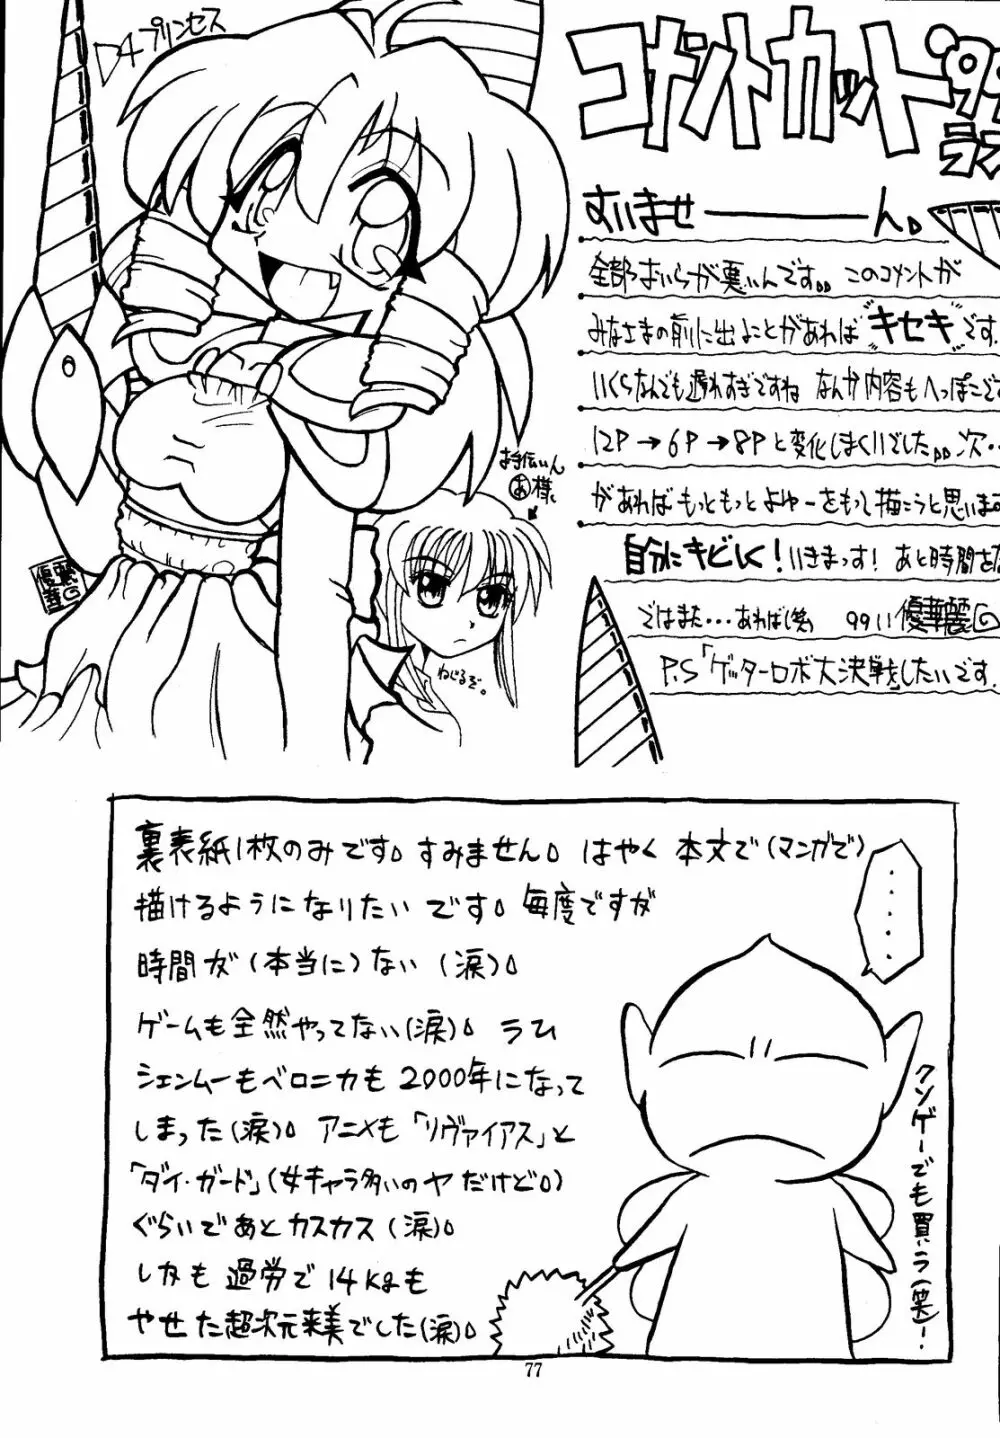 D4プリンセス
コメントカット'99
ラス
すいませーーーーん。
全部おいらが悪いんです。。このコメントが
みなさまの前に出ることがあれば"キセキ"です.
いくらなんでも遅れすぎですね なんか内容もへっぽこで
12P→6P→8Pと変化しまくりでした。。次‥
があればもっともっとよゆーをもって描こうと思いま
自分にキビしく!いきまっす! あと時間を
ではまた…あれば(笑) 99 11 優華麗
P.S「ゲッターロボ大決戦」したいです.
お手伝いん
あ様
ねじるぞ。
裏表紙1枚のみです。すみません。はやく本文で(マンガで)
描けるようになりたいです。毎度ですが
時間が(本当に)ない(涙)。
ゲームも全然やってない(涙)。ラひ
シェンムーもベロニカも2000年になって
しまった(涙)。アニメも「リヴァイアス」と
「ダイ・ガード」(女キャラ多いのヤだけど。)
ぐらいであとカスカス(涙)。
しかも過労で14kgも
やせた超次元来美でした(涙)。
‥‥
クソゲーでも買いラ(笑)!
77